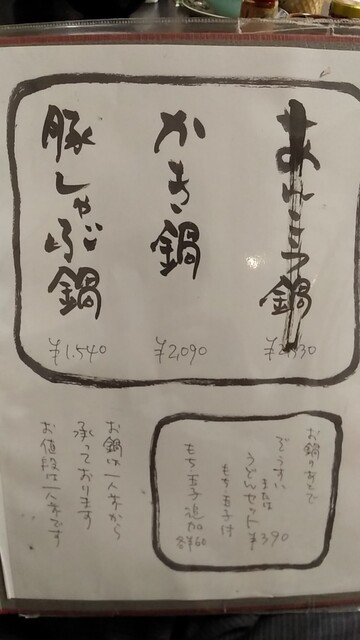 あんこう鍋
かき鍋
¥2,090
豚しゃぶ鍋
¥1,540
お鍋のあとで
ぞうすい
または
うどんセット ¥390
もち・玉子付
もち・玉子追加
各¥60
お鍋は一人前から
承っております
お値段は一人前です